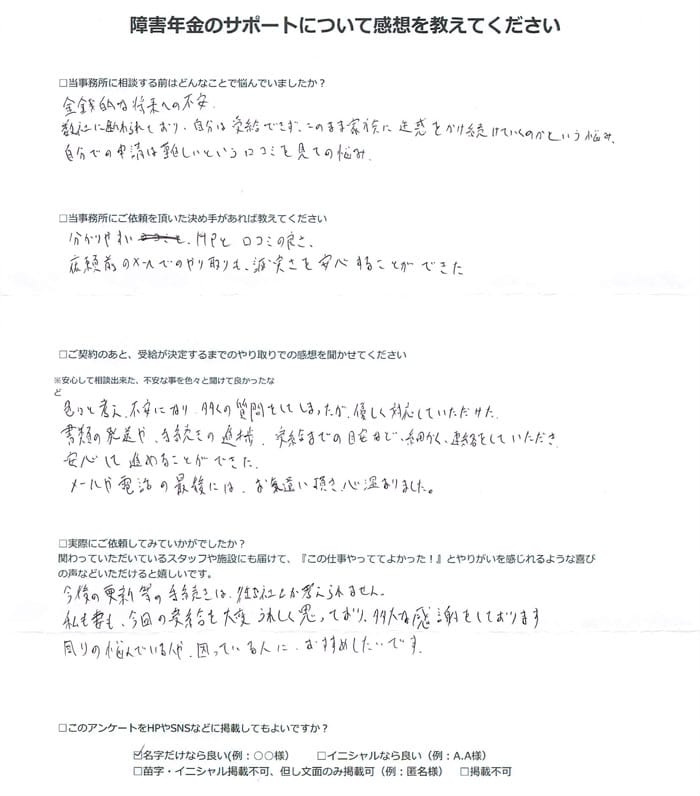 障害年金のサポートについて感想を教えてください
□当事務所に相談する前はどんなことで悩んでいましたか？
金銭的な将来への不安.
数社に断わられており、自分は受給できず、このまま家族に迷惑をかけ続けていくのかという悩み.
自分での申請は難しいという口コミを見ての悩み.
□当事務所にご依頼を頂いた決め手があれば教えてください
分かりやすい、HPと口コミの良さ、
依頼前のメールでのやり取りも、誠実さを安心することができた
□ご契約のあと、受給が決定するまでのやり取りでの感想を聞かせてください
※安心して相談出来た、不安な事を色々と聞けて良かったな
ど
色々と考え、不安になり、多くの質問をしてしまったが、優しく対応していただけた.
書類の発送や、手続きの進捗、受給までの目安など、細かく、連絡をしていただき
安心して進めることができた.
メールや電話の最後には、お気遣い頂き、心温まりました。
□実際にご依頼してみていかがでしたか？
関わっていただいているスタッフや施設にも届けて、『この仕事やっててよかった！』とやりがいを感じれるような喜び
の声などいただけると嬉しいです。
今後の更新等の手続きは、しか考えられません。
私も妻も、今回の受給を大変うれしく思っており、多大な感謝をしております
周りの悩んでいる人や、困っている人に、おすすめしたいです.
□このアンケートをHPやSNSなどに掲載してもよいですか？
☑名字だけなら良い(例：○○様)　□イニシャルなら良い（例：A.A様）
□苗字・イニシャル掲載不可、但し文面のみ掲載可（例：匿名様）　□掲載不可